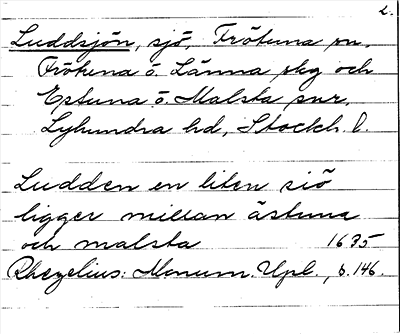 2.
Luddsjön, sjö, Frötuna sn,
Frötuna o. Länna skg och
Estuna o. Malsta snr,
Lyhundra hd, Stockh l.
Ludden en liten siö
ligger mellan ästuna
och malsta 1635
Rhezelius: Monum. Upl., s. 146.